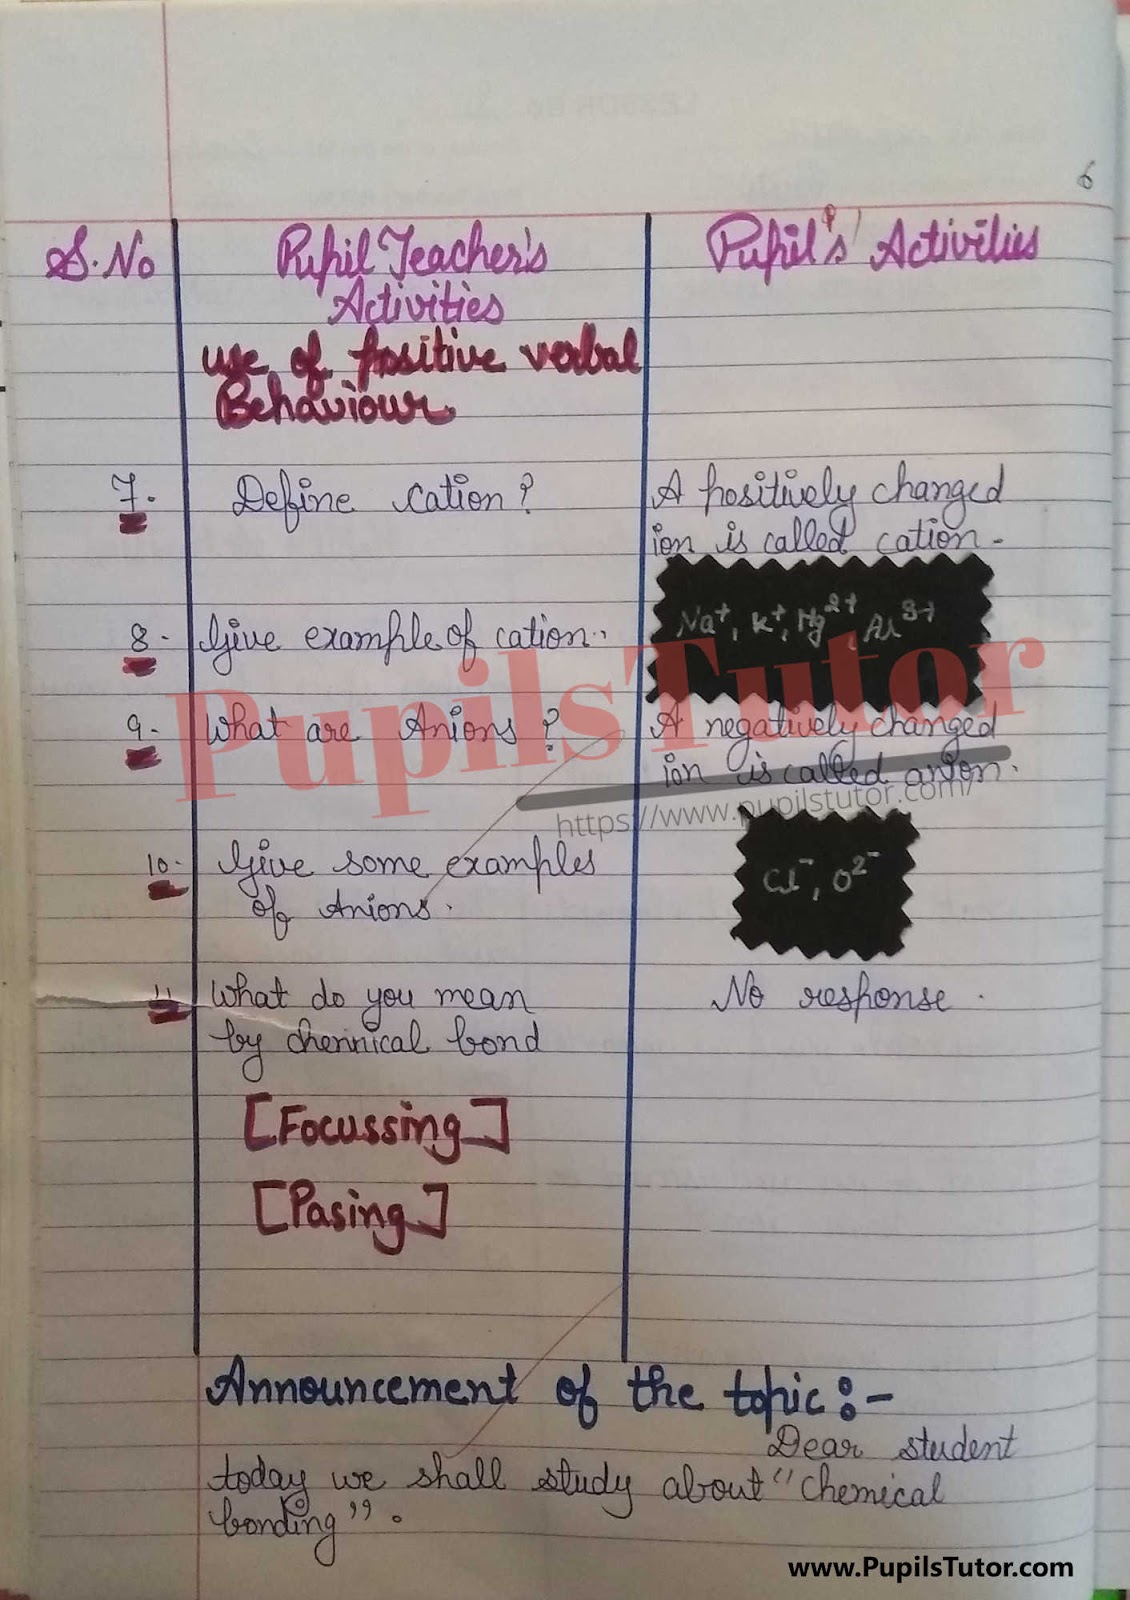 6
S.No
Pupil Teacher's
Activities
Pupil's Activities
use of positive verbal
Behaviour
7.
Define cation?
A positively changed
ion is called cation.
8.
Give example of cation.
Na+, K+, Mg2+, Al3+
9.
What are Anions?
A negatively changed
ion is called anion.
10.
Give some examples
of Anions.
Cl-, O2-
11
What do you mean
by chemical bond
No response.
[Focussing]
[Pasing]
Announcement of the topic:-
Dear student
today we shall study about "Chemical
bonding".
PupilsTutor
https://www.pupilstutor.com/
www.PupilsTutor.com